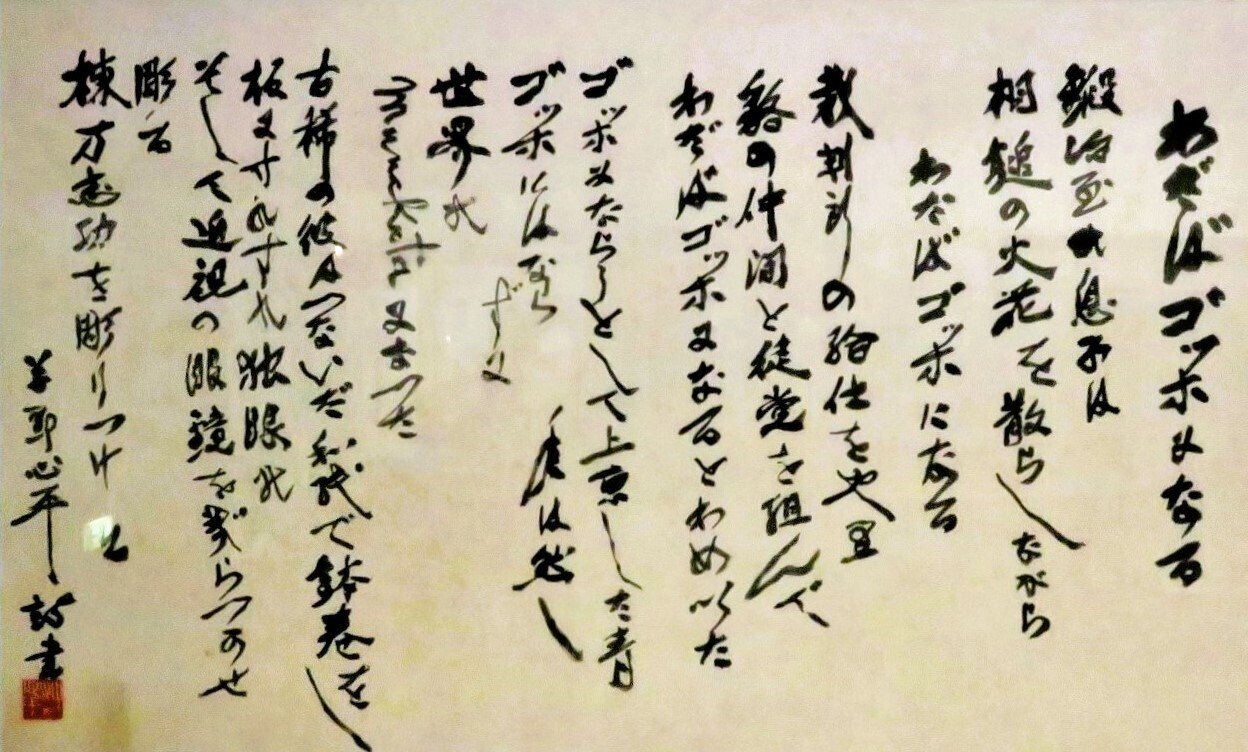 わだばゴッホになる
鍛冶屋の息子は
相槌の火花を散らしながら
わだばゴッホになる
裁判所の給仕をやり
貉の仲間と徒党を組んで
わだばゴッホになるとわめいた
ゴッホにならうとして上京した青
年は然し
ゴッホにはならずに
世界の
になった
古稀の彼はつないだ和紙で鉢巻をし
板にすれすれ独眼の
そして近視の眼鏡をぎらつかせ
彫る
棟方志功を彫りつける
草野心平 詩書